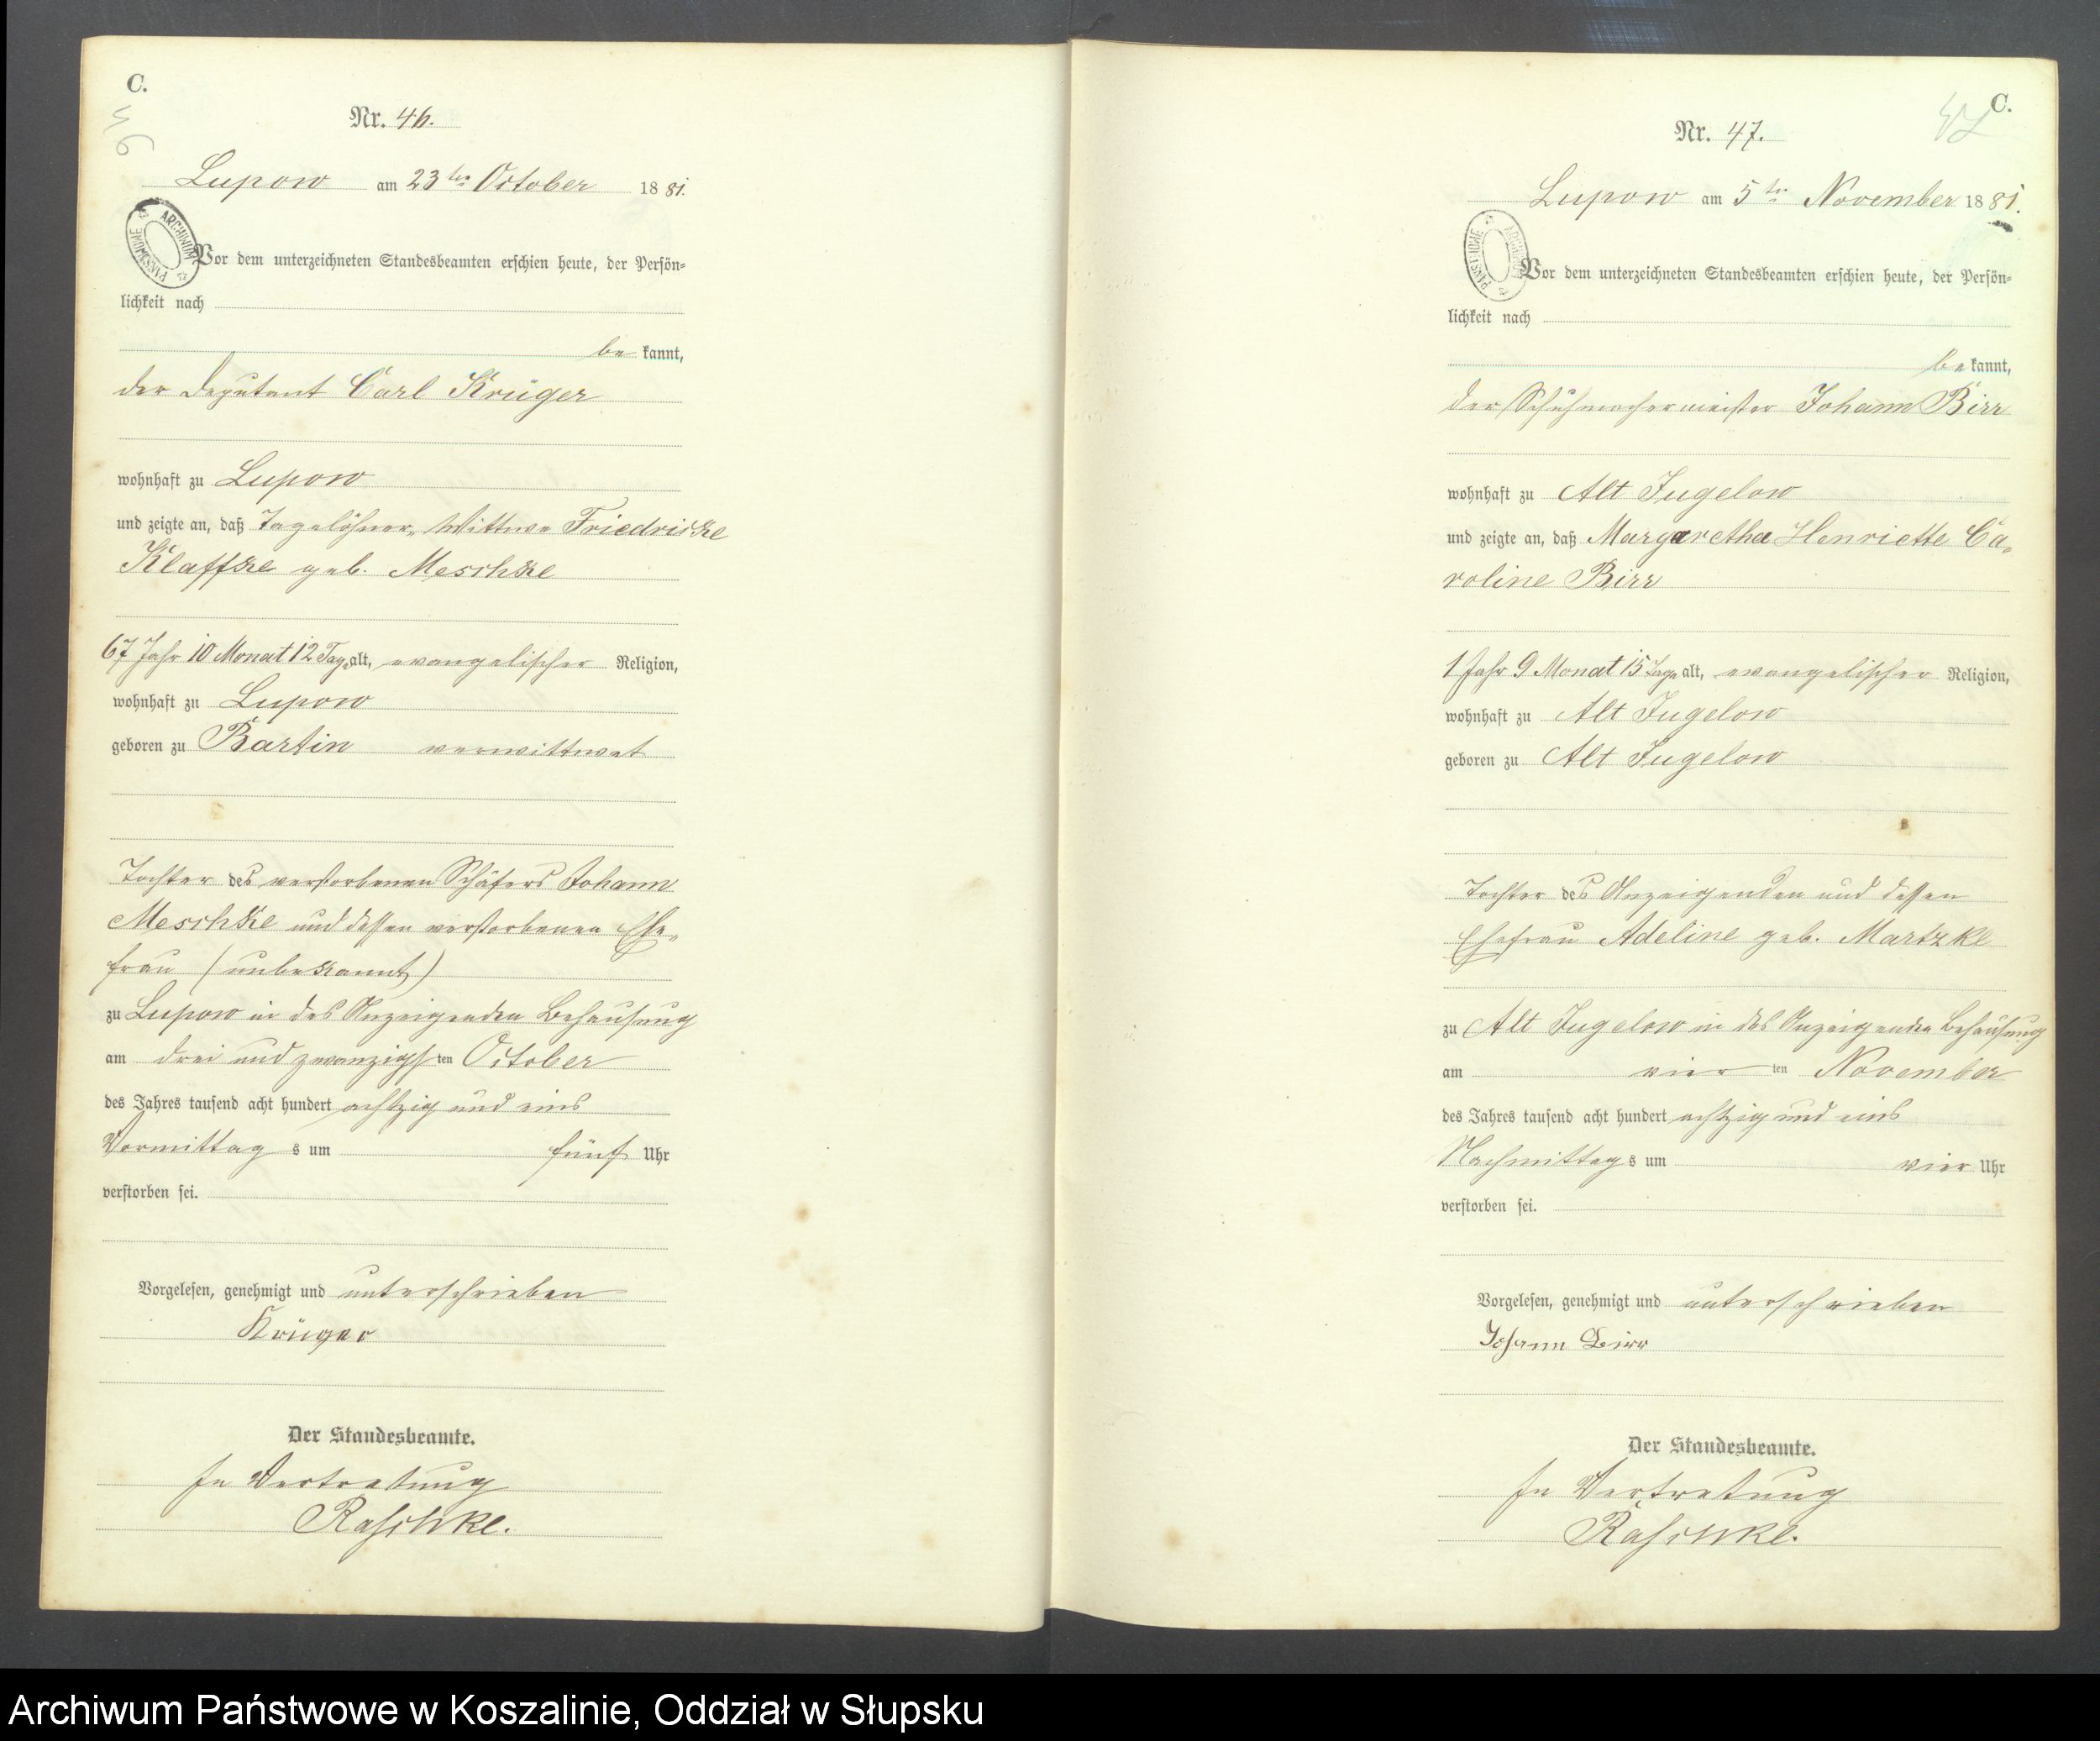 C.
46
Nr. 46.
Lupow am 23ten October 1881.
ARCHIWUM PAŃSTWOWE
Vor dem unterzeichneten Standesbeamten erschien heute, der Persön=
lichkeit nach
be kannt,
der Deputant Carl Krüger
wohnhaft zu Lupow
und zeigte an, daß Tagelöhner= Wittwe Friedricke
Klaffke geb. Meschke
67 Jahr 10 Monat 12 Tage alt, evangelischer Religion,
wohnhaft zu Lupow
geboren zu Bartin verwittwet
Tochter des verstorbenen Schäfers Johann
Meschke und dessen verstorbenen Ehe=
frau (unbekannt)
zu Lupow in des Anzeigenden Behausung
am drei und zwanzigsten October
des Jahres tausend acht hundert achtzig und eins
Vormittags um fünf Uhr
verstorben sei.
Vorgelesen, genehmigt und unterschrieben
Krüger
Der Standesbeamte.
In Vertretung
Raschke.
C.
47
Nr. 47.
Lupow am 5ten November 1881.
ARCHIWUM PAŃSTWOWE
Vor dem unterzeichneten Standesbeamten erschien heute, der Persön=
lichkeit nach
be kannt,
der Schuhmachermeister Johann Birr
wohnhaft zu Alt Jugelow
und zeigte an, daß Margaretha Henriette Ca=
roline Birr
1 Jahr 9 Monat 15 Tage alt, evangelischer Religion,
wohnhaft zu Alt Jugelow
geboren zu Alt Jugelow
Tochter des Anzeigenden und dessen
Ehefrau Adeline geb. Martzke
zu Alt Jugelow in des Anzeigenden Behausung
am vier ten November
des Jahres tausend acht hundert achtzig und eins
Nachmittags um vier Uhr
verstorben sei.
Vorgelesen, genehmigt und unterschrieben
Johann Birr
Der Standesbeamte.
In Vertretung
Raschke.
Archiwum Państwowe w Koszalinie, Oddział w Słupsku